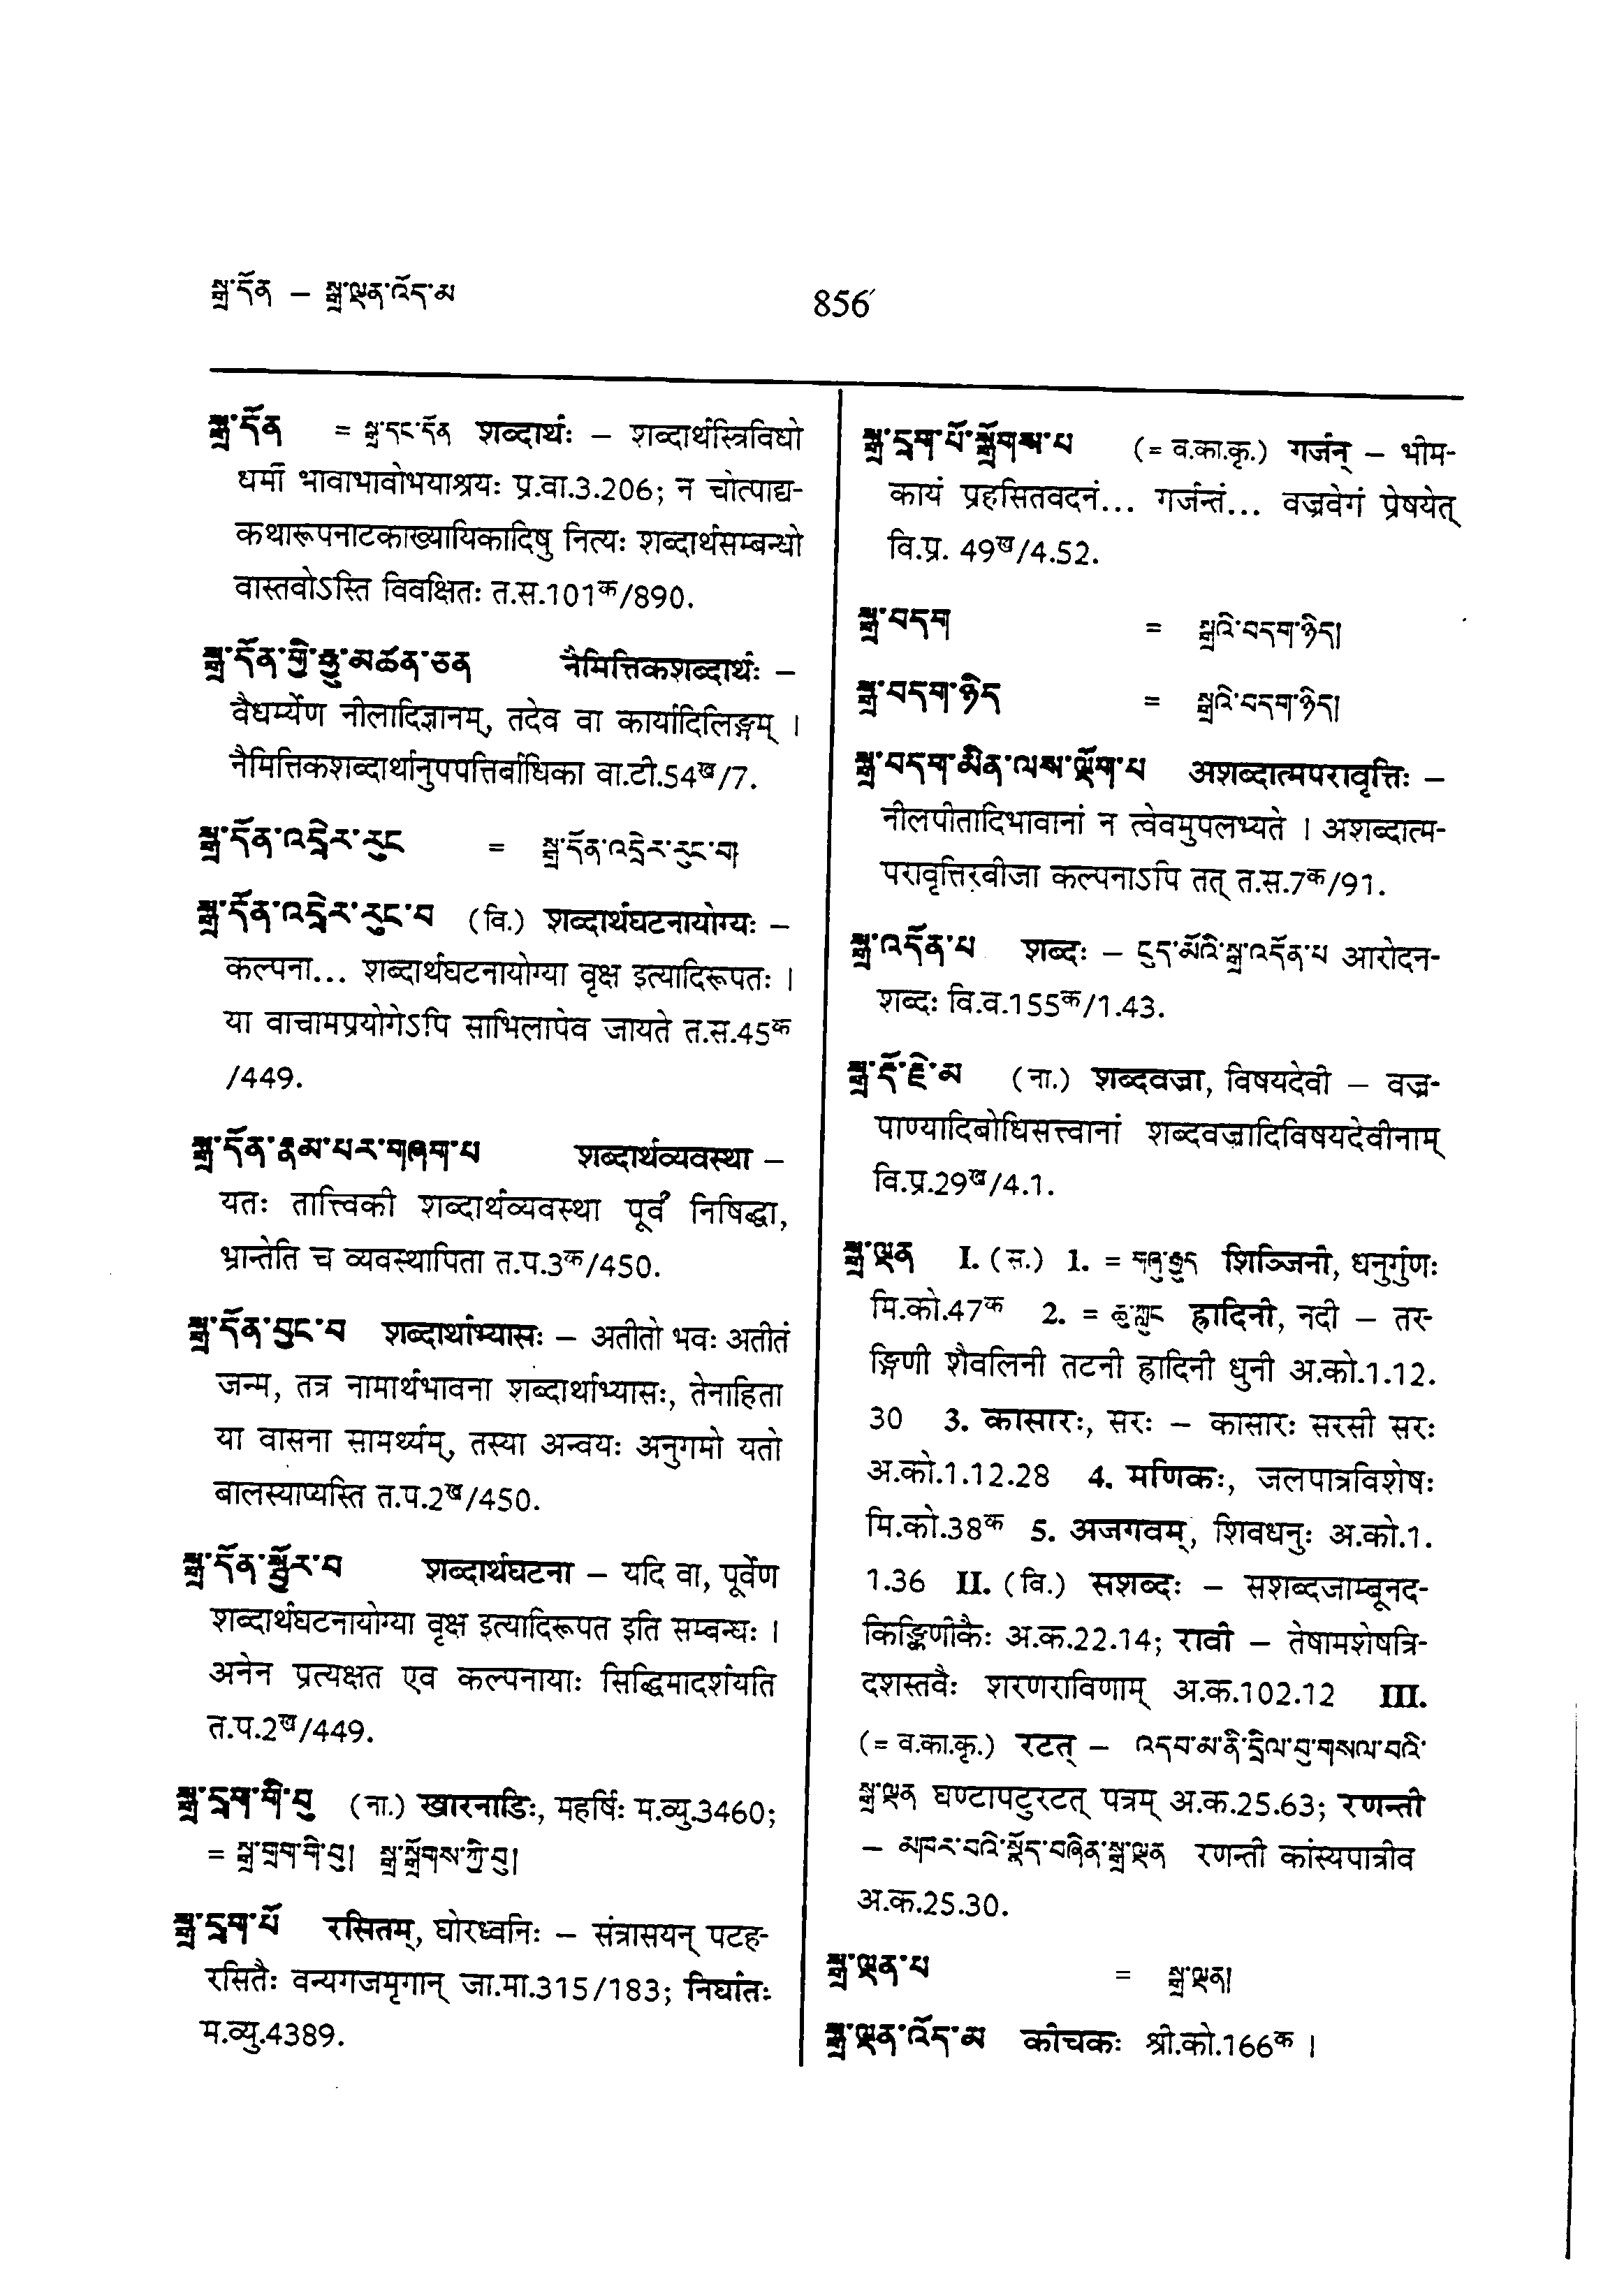 སྒྲ་དོན – སྒྲ་ལྡན་འོད་མ
856
སྒྲ་དོན = སྒྲ་དང་དོན शब्दार्थः – शब्दार्थस्त्रिविधो
धर्मी भावाभावोभयाश्रयः प्र.वा.3.206; न चोत्पाद्य-
कथारूपनाटकाख्यायिकादिषु नित्यः शब्दार्थसम्बन्धो
वास्तवोऽस्ति विवक्षितः त.स.101क/890.
སྒྲ་དོན་གྱི་རྒྱུ་མཚན་ཅན नैमित्तिकशब्दार्थः –
वैधर्म्येण नीलादिज्ञानम्, तदेव वा कार्यादिलिङ्गम् ।
नैमित्तिकशब्दार्थानुपपत्तिर्बाधिका वा.टी.54ख/7.
སྒྲ་དོན་འདྲེར་རུང = སྒྲ་དོན་འདྲེར་རུང་བ།
སྒྲ་དོན་འདྲེར་རུང་བ (वि.) शब्दार्थघटनायोग्यः –
कल्पना... शब्दार्थघटनायोग्या वृक्ष इत्यादिरूपतः ।
या वाचामप्रयोगेऽपि साभिलापेव जायते त.स.45क
/449.
སྒྲ་དོན་རྣམ་པར་གཞག་པ शब्दार्थव्यवस्था –
यतः तात्त्विकी शब्दार्थव्यवस्था पूर्वं निषिद्धा,
भ्रान्तेति च व्यवस्थापिता त.प.3क/450.
སྒྲ་དོན་བྱང་བ शब्दार्थाभ्यासः – अतीतो भवः अतीतं
जन्म, तत्र नामार्थभावना शब्दार्थाभ्यासः, तेनाहिता
या वासना सामर्थ्यम्, तस्या अन्वयः अनुगमो यतो
बालस्याप्यस्ति त.प.2ख/450.
སྒྲ་དོན་སྦྱོར་བ शब्दार्थघटना – यदि वा, पूर्वेण
शब्दार्थघटनायोग्या वृक्ष इत्यादिरूपत इति सम्बन्धः ।
अनेन प्रत्यक्षत एव कल्पनायाः सिद्धिमादर्शयति
त.प.2ख/449.
སྒྲ་དྲག་གི་བུ (ना.) खारनाडिः, महर्षिः म.व्यु.3460;
= སྒྲ་གྲག་གི་བུ། སྒྲ་སྒྲོགས་ཀྱི་བུ།
སྒྲ་དྲག་པོ रसितम्, घोरध्वनिः – संत्रासयन् पटह-
रसितैः वन्यगजमृगान् जा.मा.315/183; निर्घातः
म.व्यु.4389.
སྒྲ་དྲག་པོ་སྒྲོགས་པ (= व.का.कृ.) गर्जन् – भीम-
कायं प्रहसितवदनं... गर्जन्तं... वज्रवेगं प्रेषयेत्
वि.प्र. 49ख/4.52.
སྒྲ་བདག = སྒྲའི་བདག་ཉིད།
སྒྲ་བདག་ཉིད = སྒྲའི་བདག་ཉིད།
སྒྲ་བདག་མིན་ལས་ལྡོག་པ अशब्दात्मपरावृत्तिः –
नीलपीतादिभावानां न त्वेवमुपलभ्यते । अशब्दात्म-
परावृत्तिरबीजा कल्पनाऽपि तत् त.स.7क/91.
སྒྲ་འདོན་པ शब्दः – ངུད་མོའི་སྒྲ་འདོན་པ आरोदन-
शब्दः वि.व.155क/1.43.
སྒྲ་རྡོ་རྗེ་མ (ना.) शब्दवज्रा, विषयदेवी – वज्र-
पाण्यादिबोधिसत्त्वानां शब्दवज्रादिविषयदेवीनाम्
वि.प्र.29ख/4.1.
སྒྲ་ལྡན I. (स.) 1. = གཞུ་རྒྱུད शिञ्जिनी, धनुर्गुणः
मि.को.47क 2. = ཆུ་ཀླུང ह्रादिनी, नदी – तर-
ङ्गिणी शैवलिनी तटनी ह्रादिनी धुनी अ.को.1.12.
30 3. कासारः, सरः – कासारः सरसी सरः
अ.को.1.12.28 4. मणिकः, जलपात्रविशेषः
मि.को.38क 5. अजगवम्, शिवधनुः अ.को.1.
1.36 II. (वि.) सशब्दः – सशब्दजाम्बूनद-
किङ्किणीकैः अ.क.22.14; रावी – तेषामशेषत्रि-
दशस्तवैः शरणराविणाम् अ.क.102.12 III.
(= व.का.कृ.) रटत् – འདབ་མ་ནི་དྲིལ་བུ་གསལ་བའི་
སྒྲ་ལྡན घण्टापटुरटत् पत्रम् अ.क.25.63; रणन्ती
– མཁར་བའི་སྣོད་བཞིན་སྒྲ་ལྡན रणन्ती कांस्यपात्रीव
अ.क.25.30.
སྒྲ་ལྡན་པ = སྒྲ་ལྡན།
སྒྲ་ལྡན་འོད་མ कीचकः श्री.को.166क ।